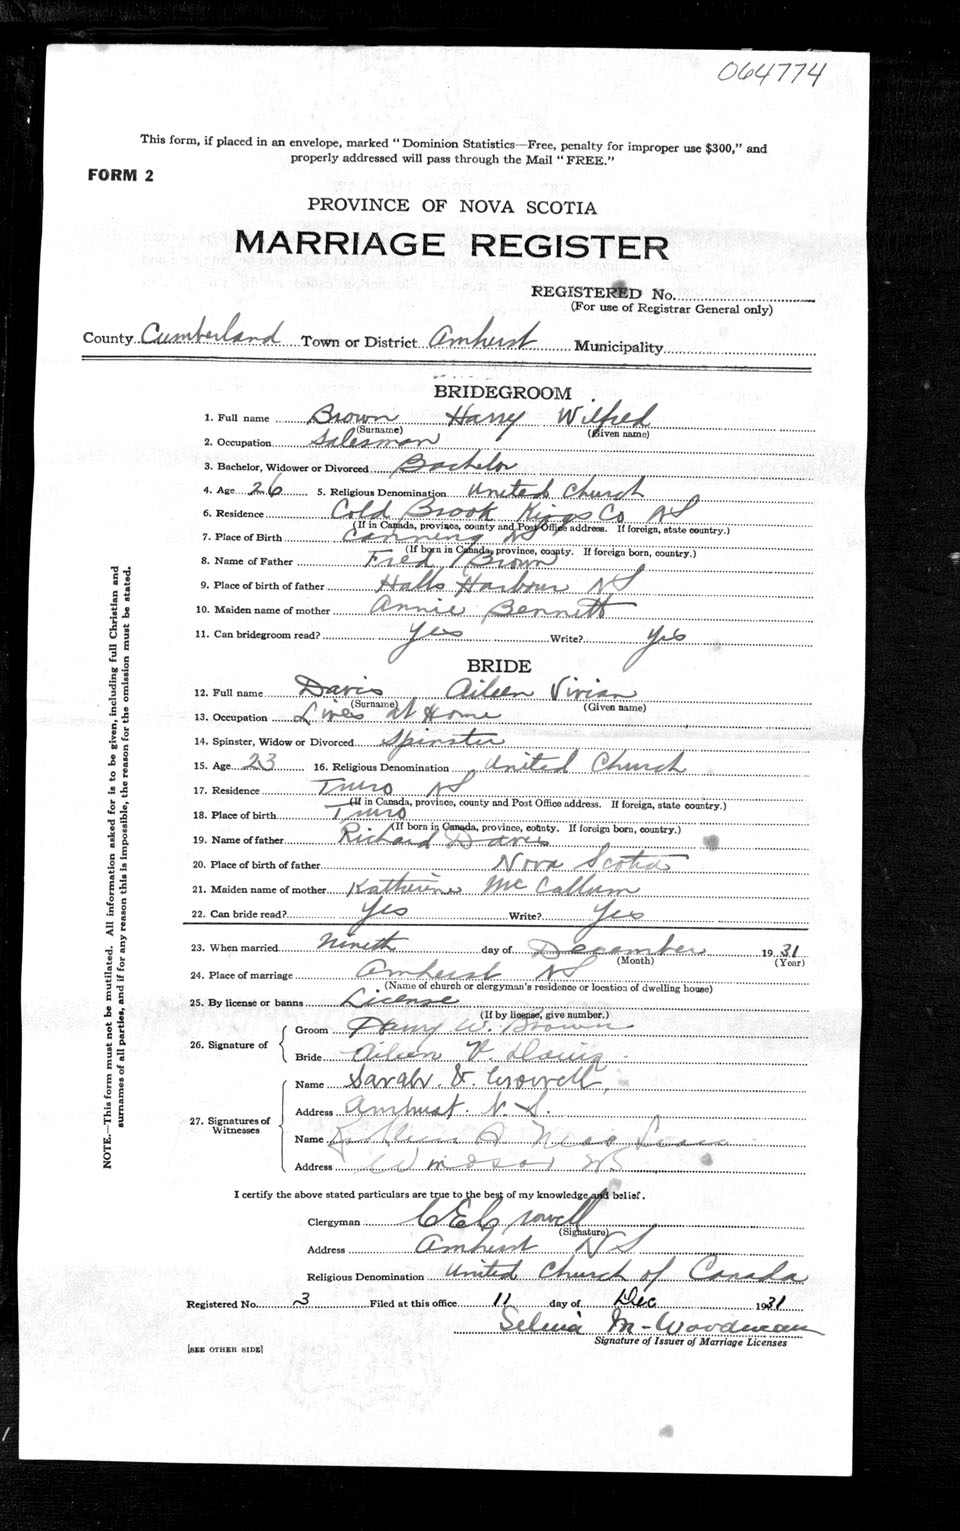 064774
This form, if placed in an envelope, marked "Dominion Statistics—Free, penalty for improper use $300," and
properly addressed will pass through the Mail "FREE."
FORM 2
PROVINCE OF NOVA SCOTIA
MARRIAGE REGISTER
REGISTERED No.
(For use of Registrar General only)
County Cumberland Town or District Amherst Municipality
BRIDEGROOM
1. Full name Brown Harry Wilfred
(Surname) (Given name)
2. Occupation Salesman
3. Bachelor, Widower or Divorced Bachelor
4. Age 26 5. Religious Denomination United Church
6. Residence Cold Brook Kings Co NS
(If in Canada, province, county and Post Office address. If foreign, state country.)
7. Place of Birth Canning NS
(If born in Canada, province, county. If foreign born, country.)
8. Name of Father Fred Brown
9. Place of birth of father Halls Harbour NS
10. Maiden name of mother Annie Bennett
11. Can bridegroom read? Yes Write? Yes
BRIDE
12. Full name Davis Aileen Vivian
(Surname) (Given name)
13. Occupation Lives at Home
14. Spinster, Widow or Divorced Spinster
15. Age 23 16. Religious Denomination United Church
17. Residence Truro NS
(If in Canada, province, county and Post Office address. If foreign, state country.)
18. Place of birth Truro
(If born in Canada, province, county. If foreign born, country.)
19. Name of father Richard Davis
20. Place of birth of father Nova Scotia
21. Maiden name of mother Katherine McCallum
22. Can bride read? Yes Write? Yes
23. When married Nineth day of December 1931
(Month) (Year)
24. Place of marriage Amherst NS
(Name of church or clergyman's residence or location of dwelling house)
25. By license or banns License
(If by license, give number.)
26. Signature of
Groom Harry W. Brown
Bride Aileen V. Davis
27. Signatures of Witnesses
Name Sarah E. Crowell
Address Amherst. N.S.
Name
Address Windsor NS
I certify the above stated particulars are true to the best of my knowledge and belief.
Clergyman C E Crowell
(Signature)
Address Amherst NS
Religious Denomination United Church of Canada
Registered No. 3 Filed at this office 11 day of Dec 1931
Selena M-Woodman
Signature of Issuer of Marriage Licenses
[SEE OTHER SIDE]
NOTE.—This form must not be mutilated. All information asked for is to be given, including full Christian and
surnames of all parties, and if for any reason this is impossible, the reason for the omission must be stated.